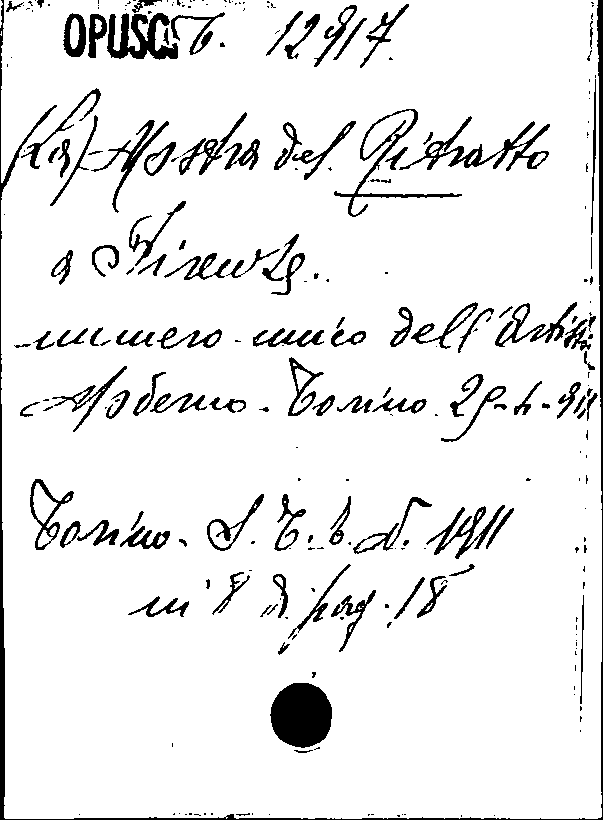 OPUSC. T. 12917.
(La) Mostra del Ritratto
a Firenze.
numero unico dell'Artista
Moderno. Torino 25-4-911
Torino. S. T. 1911
in 8 di pag. 18